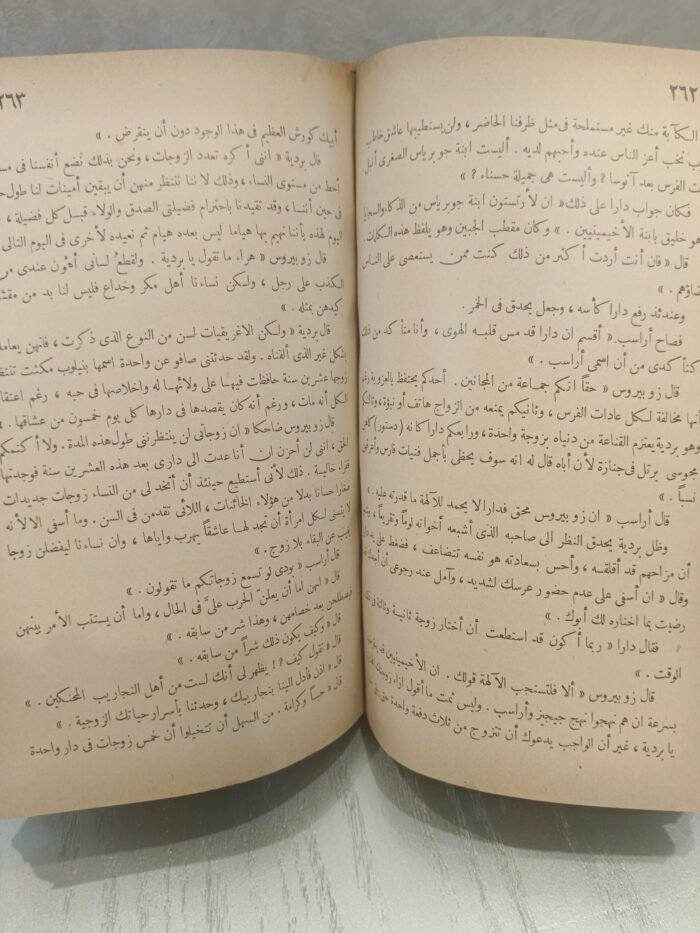 ٢٦٢
الكآبة منك غير مستملحة فى مثل ظرفنا الحاضر ، ولن يستطيبها عاشق خاطب
نخب أعز الناس عنده وأحبهم لديه . أليست ابنة جوبرياس الصغرى أنبل
ت الفرس بعد آتوسا ? وأليست هى جميلة حسناء ? »
فكان جواب دارا على ذلك « ان لأرتستون ابنة جوبرياس من الذكاء والسجايا
هو خليق بابنة الأخيمينيين . » وكان مقطب الجبين وهو يلفظ هذه الكلمات .
قال « فان أنت أردت أكثر من ذلك كنت ممن يستعصى على الناس
ضاؤهم . »
وعندئذ رفع دارا كأسه ، وجعل يحدق فى الخمر .
فصاح أراسب . « أقسم ان دارا قد مس قلبه الهوى ، وأنا متأكد من ذلك
كتأكدى من أن اسمى أراسب . »
قال زوبيروس « حقاً انكم جماعة من المجانين . أحدكم يحتفظ بالعزوبة رغم
أنها مخالفة لكل عادات الفرس ، وثانيكم يمنعه من الزواج هاتف أو نبوة ، وثالثكم
وهو بردية يعتزم القناعة من دنياه بزوجة واحدة ، ورابعكم دارا كانه ( دستور ) كاهن
مجوسى يرتل فى جنازة لأن أباه قال له انه سوف يحظى بأجمل فتيات فارس وأعرقهن
نسباً . »
قال أراسب « ان زوبيروس محق فدارا لا يحمد للآلهة ما قدرته عليه . »
وظل بردية يحدق النظر الى صاحبه الذى أشبعه أخوانه لوماً وتقريعاً ،
أن مزاحهم قد أقلقه ، وأحس بسعادته هو نفسه تتضاعف ، فضغط على يد دارا
وقال « ان أسفى على عدم حضور عرسك لشديد ، وآمل عند رجوعى أن أجدك
رضيت بما اختاره لك أبوك . »
فقال دارا « ربما أكون قد استطعت أن أختار زوجة ثانية وثالثة فى ذلك
الوقت . »
قال زوبيروس « ألا فلتستجب الآلهة قولك . ان الأخيمينيين قد
بسرعة ان هم نهجوا نهج جيجيز وأراسب . وليس ثمت ما أقول ازاء زوجتك
يا بردية ، غير أن الواجب يدعوك أن تتزوج من ثلاث دفعة واحدة حتى
٢٦٣
أبيك كورش العظيم فى هذا الوجود دون أن ينقرض . »
قال بردية « اننى أكره تعدد الزوجات ، ونحن بذلك نضع أنفسنا فى مس
أحط من مستوى النساء ، وذلك لأننا ننتظر منهن أن يبقين أمينات لنا طول
فى حين أننا ، وقد تقيدنا باحترام فضيلتى الصدق والولاء قبل كل فضيلة ،
اليوم لهذه بأننا نهيم بها هياما ليس بعده هيام ثم نعيده لأخرى فى اليوم التالى
قال زوبيروس « هراء ما تقول يا بردية . ولقطع لسانى أهون عندى من
الكذب على رجل ، ولكن نساءنا أهل مكر وخداع فليس لنا بد من مقا
كيدهن بمثله . »
قال بردية « ولكن الاغريقيات لسن من النوع الذى ذكرت ، فانهن يعامل
بشكل غير الذى ألفناه . ولقد حدثتنى صافو عن واحدة اسمها بنيلوب مكثت تنتظر
زوجها عشرين سنة حافظات فيها على ولائها له واخلاصها فى حبه ، رغم اعتقاد
الكل أنه مات ، ورغم أنه كان يقصدها فى دارها كل يوم خمسون من عشاقها . »
قال زوبيروس ضاحكا « ان زوجاتى لن ينتظرننى طول هذه المدة . ولا أكتمكم
الحق ، اننى لن أحزن ان أنا عدت الى دارى بعد هذه العشرين سنة فوجدتها
قفراء خالية . ذلك لأنى أستطيع حينئذ أن أتخذ لى من النساء زوجات جديدات
صغارا حسانا بدلا من هؤلاء الخائنات ، اللائى تقدمن فى السن . وما أسفى الا لأنه
لا يتسنى لكل امرأة أن تجد لها عاشقاً يهرب واياها ، وان نساءنا ليفضلن زوجا
يغيب عن البقاء بلا زوج . »
قال أراسب « بودى لو تسمع زوجاتكم ما تقولون . »
قال « انهن اما أن يعلنّ الحرب علىّ فى الحال ، واما أن يستتب الأمر بينهن
فيصطلحن بعد خصامهن ، وهذا شر من سابقه . »
قال « وكيف يكون ذلك شراً من سابقه . »
قال « تقول كيف ?! يظهر لى أنك لست من أهل التجاريب المحنكين . »
قال « اذن فأدل الينا بتجاريبك ، وحدثنا بأسرار حياتك الزوجية . »
قال « حباً وكرامة . من السهل أن تتخيلوا أن خمس زوجات فى دار واحدة